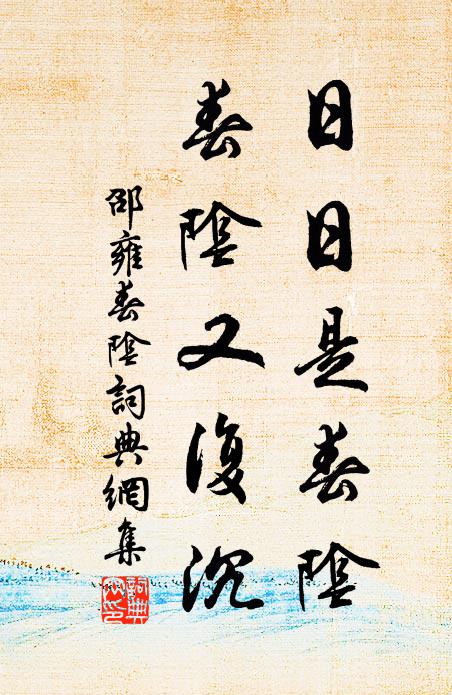 日日是春陰
春陰又復沉
邵雍春陰詞典網集